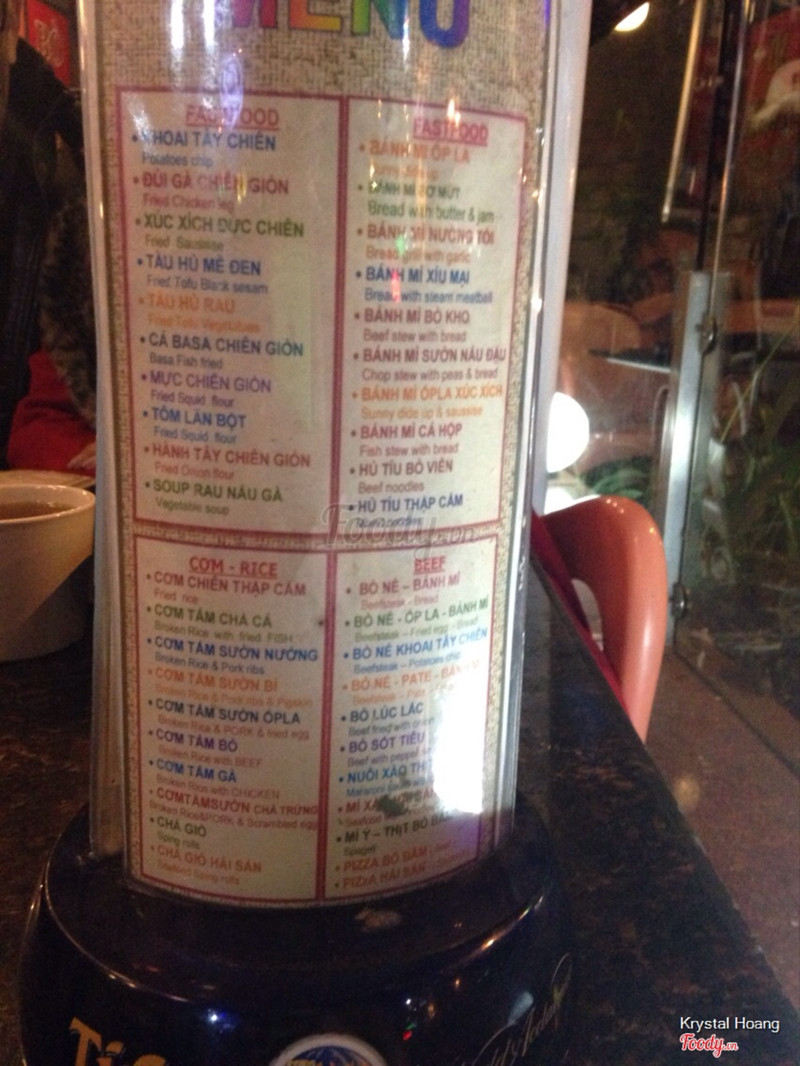 MENU
FASTFOOD
• KHOAI TÂY CHIÊN
Potatoes chip
• ĐÙI GÀ CHIÊN GIÒN
Fried Chicken leg
• XÚC XÍCH ĐỨC CHIÊN
Fried Sausisse
• TÀU HỦ MÈ ĐEN
Fried Tofu Black sesam
• TÀU HỦ RAU
Fried Tofu
• CÁ BASA CHIÊN GIÒN
Basa Fish fried
• MỰC CHIÊN GIÒN
Fried Squid flour
• TÔM LĂN BỘT
Fried Squid flour
• HÀNH TÂY CHIÊN GIÒN
Fried Onion flour
• SOUP RAU NẤU GÀ
Vegetable soup
FASTFOOD
• BÁNH MÌ ỐP LA
• BÁNH MÌ BƠ MỨT
Bread with butter & jam
• BÁNH MÌ NƯỚNG TỎI
Bread grill with garlic
• BÁNH MÌ XÍU MẠI
Bread with steam meatball
• BÁNH MÌ BÒ KHO
Beef stew with bread
• BÁNH MÌ SƯỜN NẤU ĐẬU
Chop stew with peas & bread
• BÁNH MÌ ÓPLA XÚC XÍCH
Sunny dide up & sausisse
• BÁNH MÌ CÁ HỘP
Fish stew with bread
• HỦ TÍU BÒ VIÊN
Beef noodles
• HỦ TÍU THẬP CẨM
CƠM - RICE
• CƠM CHIÊN THẬP CẨM
Fried rice
• CƠM TẤM CHẢ CÁ
Broken Rice with fried FISH
• CƠM TẤM SƯỜN NƯỚNG
Broken Rice & Pork ribs
• CƠM TẤM SƯỜN BÌ
Broken Rice & Pork ribs & Pigskin
• CƠM TẤM SƯỜN ÓPLA
Broken Rice & PORK & fried egg
• CƠM TẤM BÒ
Broken Rice with BEEF
• CƠM TẤM GÀ
Broken Rice with CHICKEN
• CƠMTẤMSƯỜN CHẢ TRỨNG
Broken Rice&PORK & Scrambled egg
• CHẢ GIÒ
Sping rolls
• CHẢ GIÒ HẢI SẢN
Seafood Sping rolls
BEEF
• BÒ NÉ – BÁNH MÌ
Beefsteak - Bread
• BÒ NÉ - ỐP LA - BÁNH MÌ
Beefsteak – Fried egg - Bread
• BÒ NÉ KHOAI TÂY CHIÊN
Beefsteak – Potatoes chip
• BÒ NÉ - PATE - BÁNH MÌ
Beefsteak – Pate
• BÒ LÚC LẮC
Beef fried with onion
• BÒ SỐT TIÊU
Beef with pepper
• NUÔI XÀO
Macaroni
• MÌ
• MÌ Ý – THỊT BÒ BẰM
Spaget
• PIZZA BÒ BẰM
• PIZZA HẢI SẢN
Foody.vn
Krystal Hoang
Foody.vn